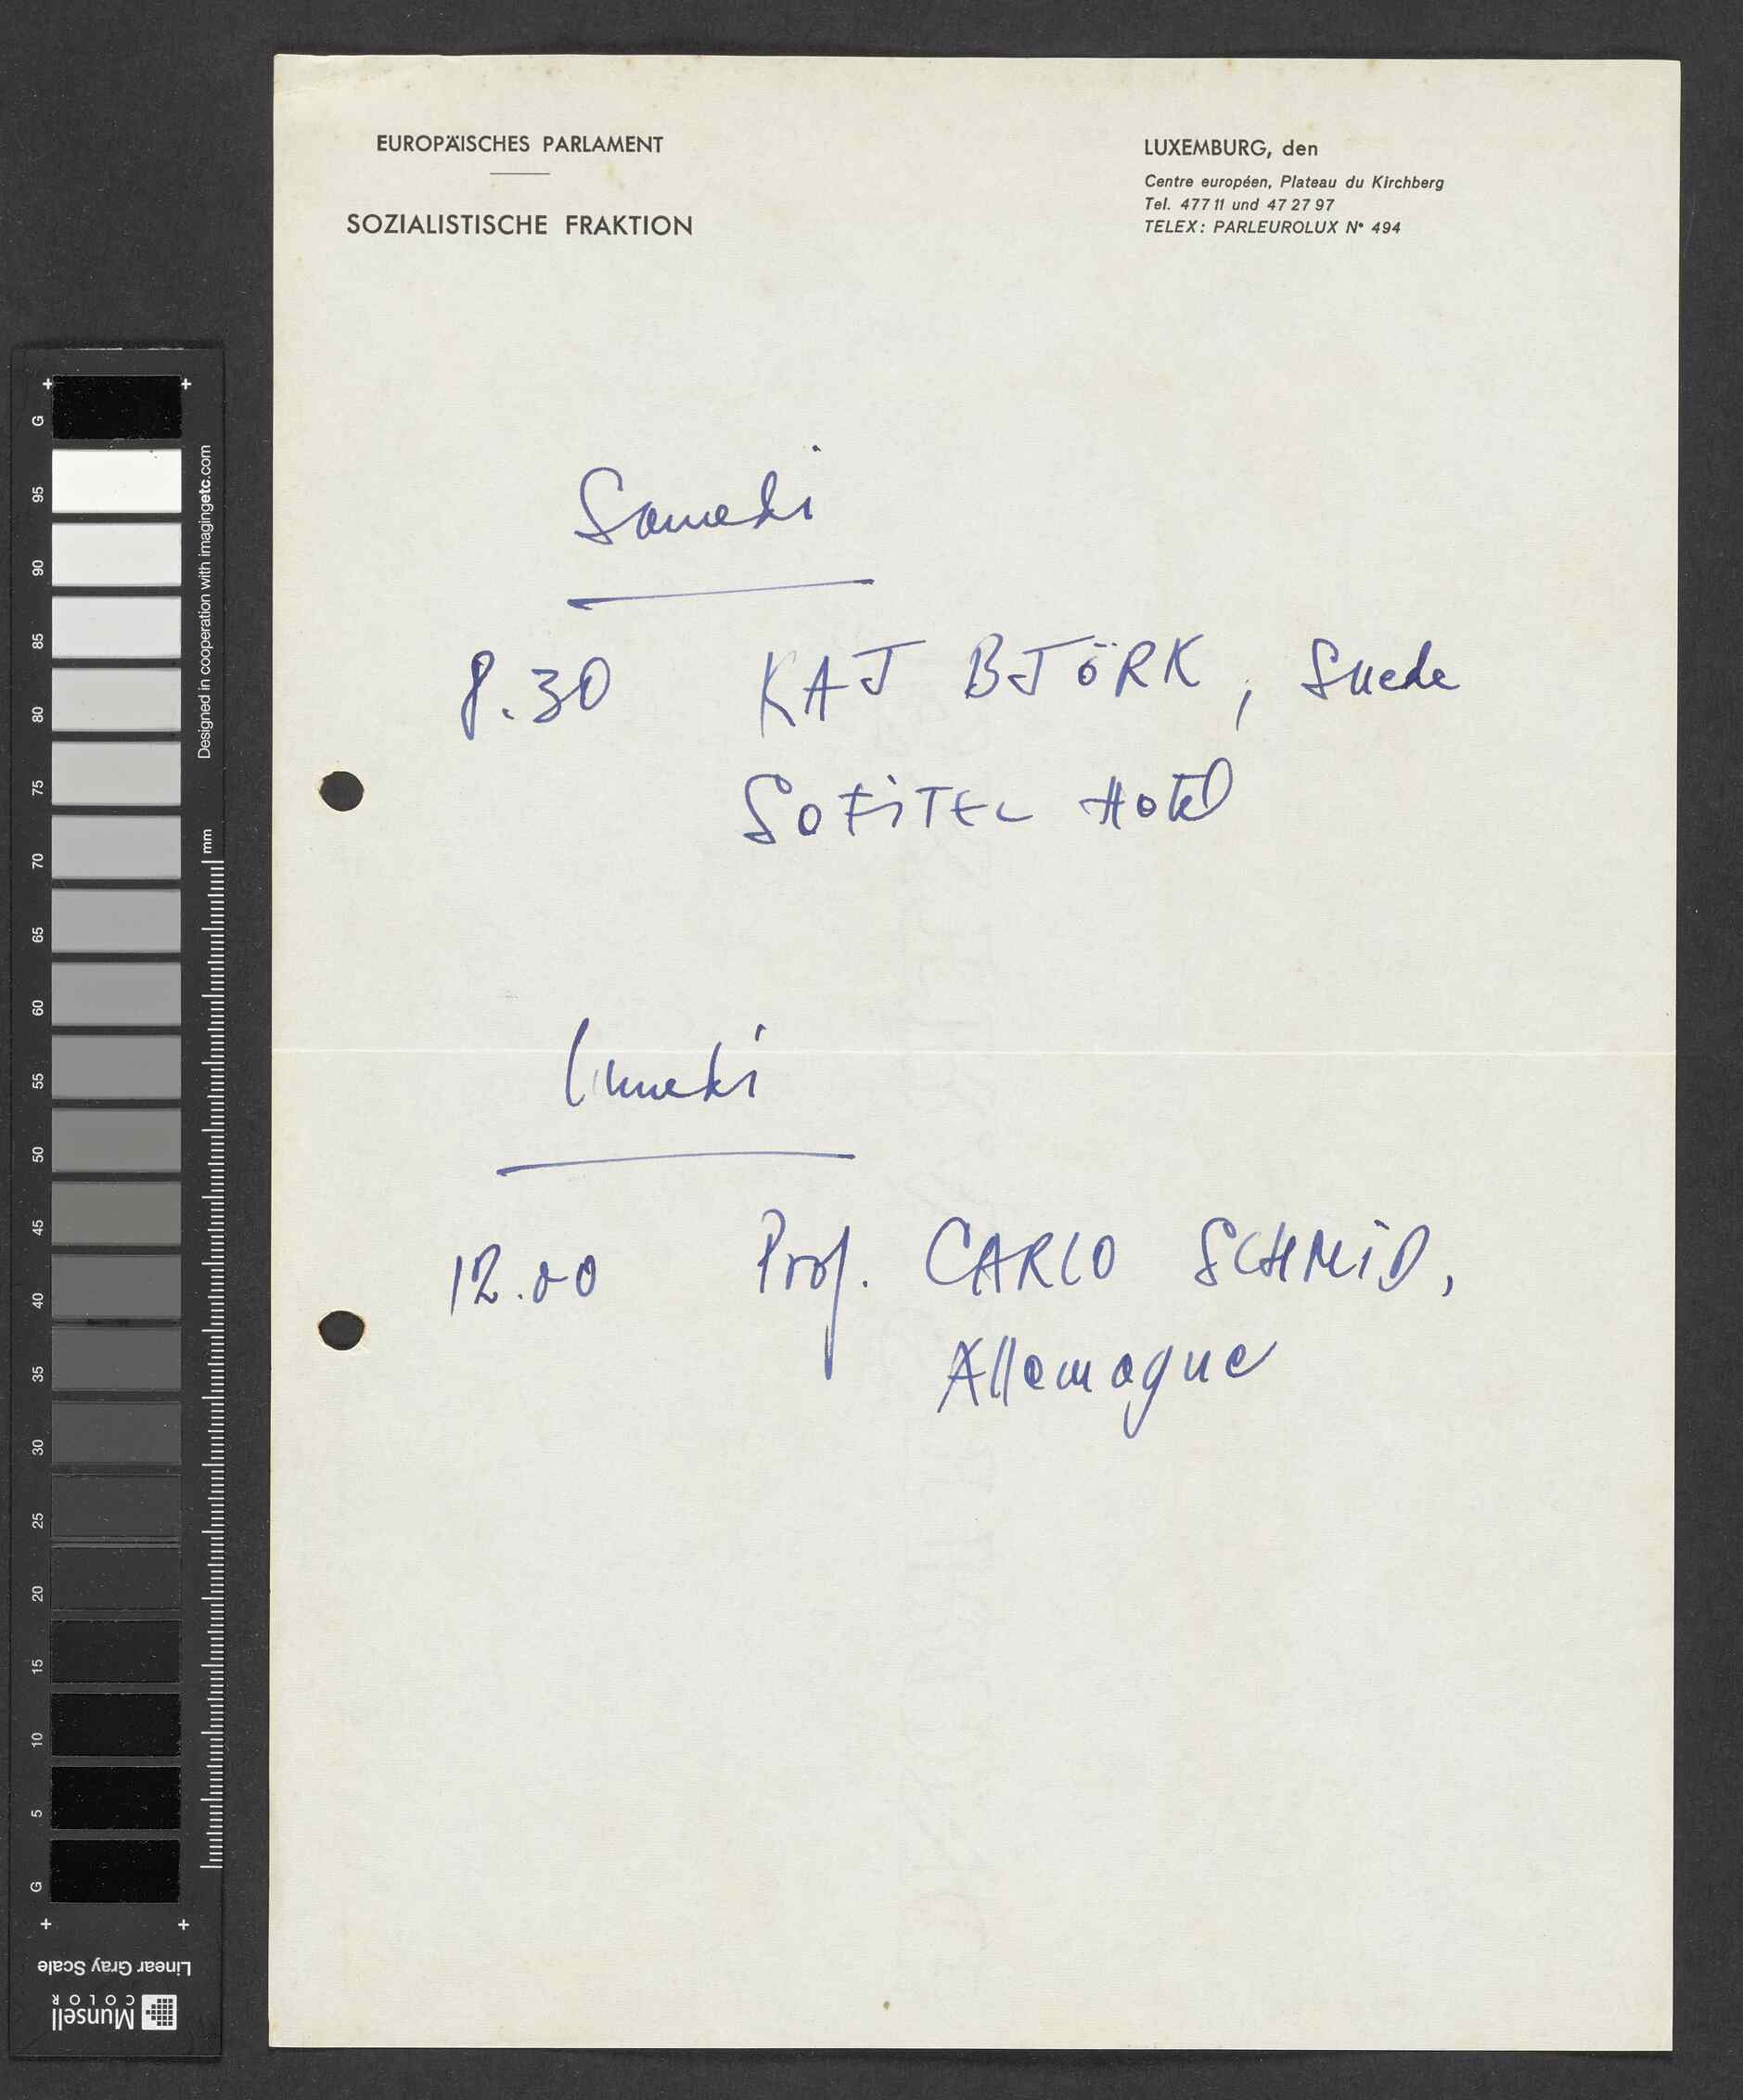 EUROPÄISCHES PARLAMENT
SOZIALISTISCHE FRAKTION
LUXEMBURG, den
Centre européen, Plateau du Kirchberg
Tel. 477 11 und 47 27 97
TELEX: PARLEUROLUX N° 494
Samedi
8.30 KAJ BJÖRK, Suede
SOFiTEL Hotel
lundi
12.00 Prof. CARLO SCHMiD,
Allemagne
G
95
90
85
80
75
70
65
60
55
50
45
40
35
30
25
20
15
10
5
G
Designed in cooperation with imagingetc.com
mm
Linear Gray Scale
Munsell
COLOR